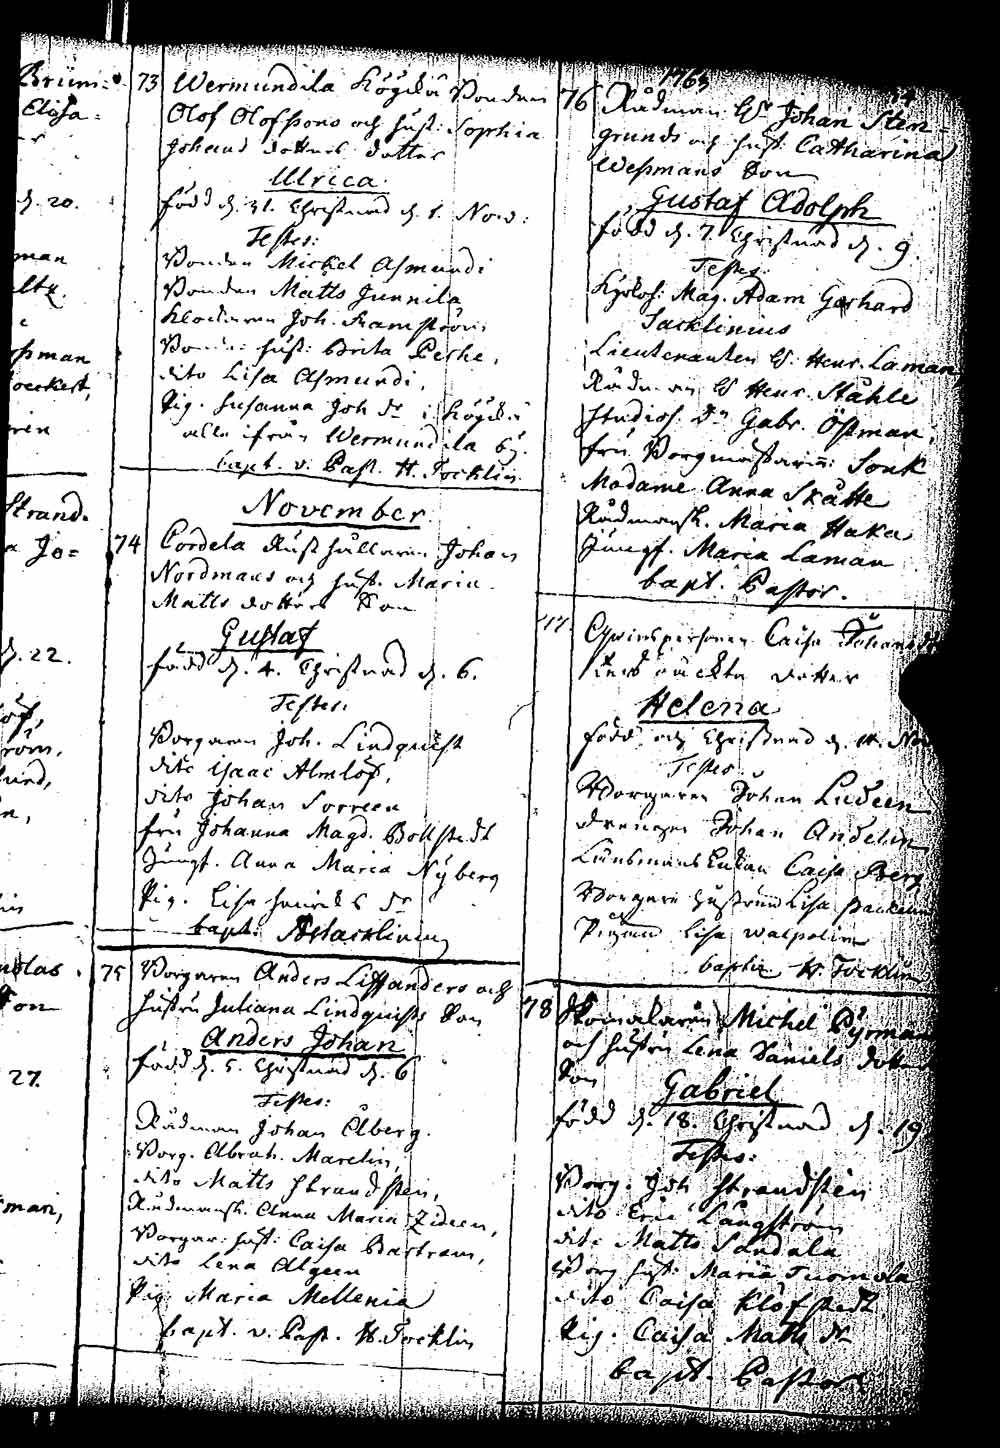 Brüm=
Elisa=
d. 20.
man
ltz.
ssman
oeckert,
ren
Strand.
a Jo=
d. 22.
löf,
röm,
lund,
n,
lin
nolas
Son
27.
man,
73 Wermundila Högikä Bonden
Olof Olofssons och hust: Sophia
Johans dotters dotter
Ulrica.
född d. 31. Christnad d. 1. Nov:
Testes:
Bonden Michel Asmundi
Bonden Matts Junnila
Klockaren Joh. Framström
Bonde hust: Brita Perhe,
dito Lisa Asmundi,
Pig. Susanna Joh dr i Högikä
alla ifrån Wermundila bÿ.
bapt. v. Past. H. Tocklin.
November.
74 Cordela Rusthållaren Johan
Nordmans och hust. Maria
Matts dotters Son
Gustaf
född d. 4. Christnad d. 6.
Testes:
Borgaren Joh. Lindquist
dito Isaac Almlöf,
dito Johan Sorreen
fru Johanna Magd. Bollstedt
Jungf. Anna Maria Nÿberg
Pig. Lisa Henrics dr
bapt.
75 Borgaren Anders Lissanders och
hustru Juliana Lindquists Son
Anders Johan
född d. 5. Christnad d. 6
Testes:
Rådman Johan Ålberg.
Borg. Abrah. Marelin,
dito Matts Strandsten,
Rådmansk. Anna Maria Zideen,
Borgar. hust: Caisa Bartram,
dito Lena Algeen
Pig. Maria Mellenia
bapt. v. Past. H. Tocklin
1763
76 Rådman Hr Johan Sten=
grunds och hust: Catharina
Wessmans Son
Gustaf Adolph
född d. 7. Christnad d. 9
Testes:
Kyrkoh: Mag. Adam Gerhard
Sacklinius
Lieutenanten H. Henr. Laman
Rådman H Henr. Ståhle
Studios. Dn Gabr. Östman,
fru Borgmästarin: Sonk
Madame Anna Skåtte
Rådmansk. Maria Haka
Jungf. Maria Laman
bapt. Pastor.
77 Qwinspersonen Caisa Johans dr
dotter
Helena
född och Christnad d. 11. Nov
Testes
Borgaren Johan Ludeen
drengen Johan Andelin
Länsmans Enkan Caisa Berg
Borgare hustrun Lisa Packalen
Pigan Lisa Walpolin
baptis. H. Tocklin
78 Michel Pyrma
och hustru Lena Daniels dotter
Son
Gabriel
född d. 18. Christnad d. 19
Testes:
Borg. Joh Strandsten
dito Eric Långström
dito Matts Sandala
Borg hust: Maria Tuomola
dito Caisa Klöfstedt
Pig. Caisa Matts dr
bapt. Pastor